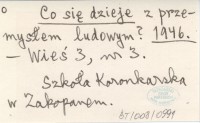 Co się dzieje z prze-
mysłem ludowym? 1946.
– Wieś 3, nr 3.
Szkoła Koronkarska
w Zakopanem.